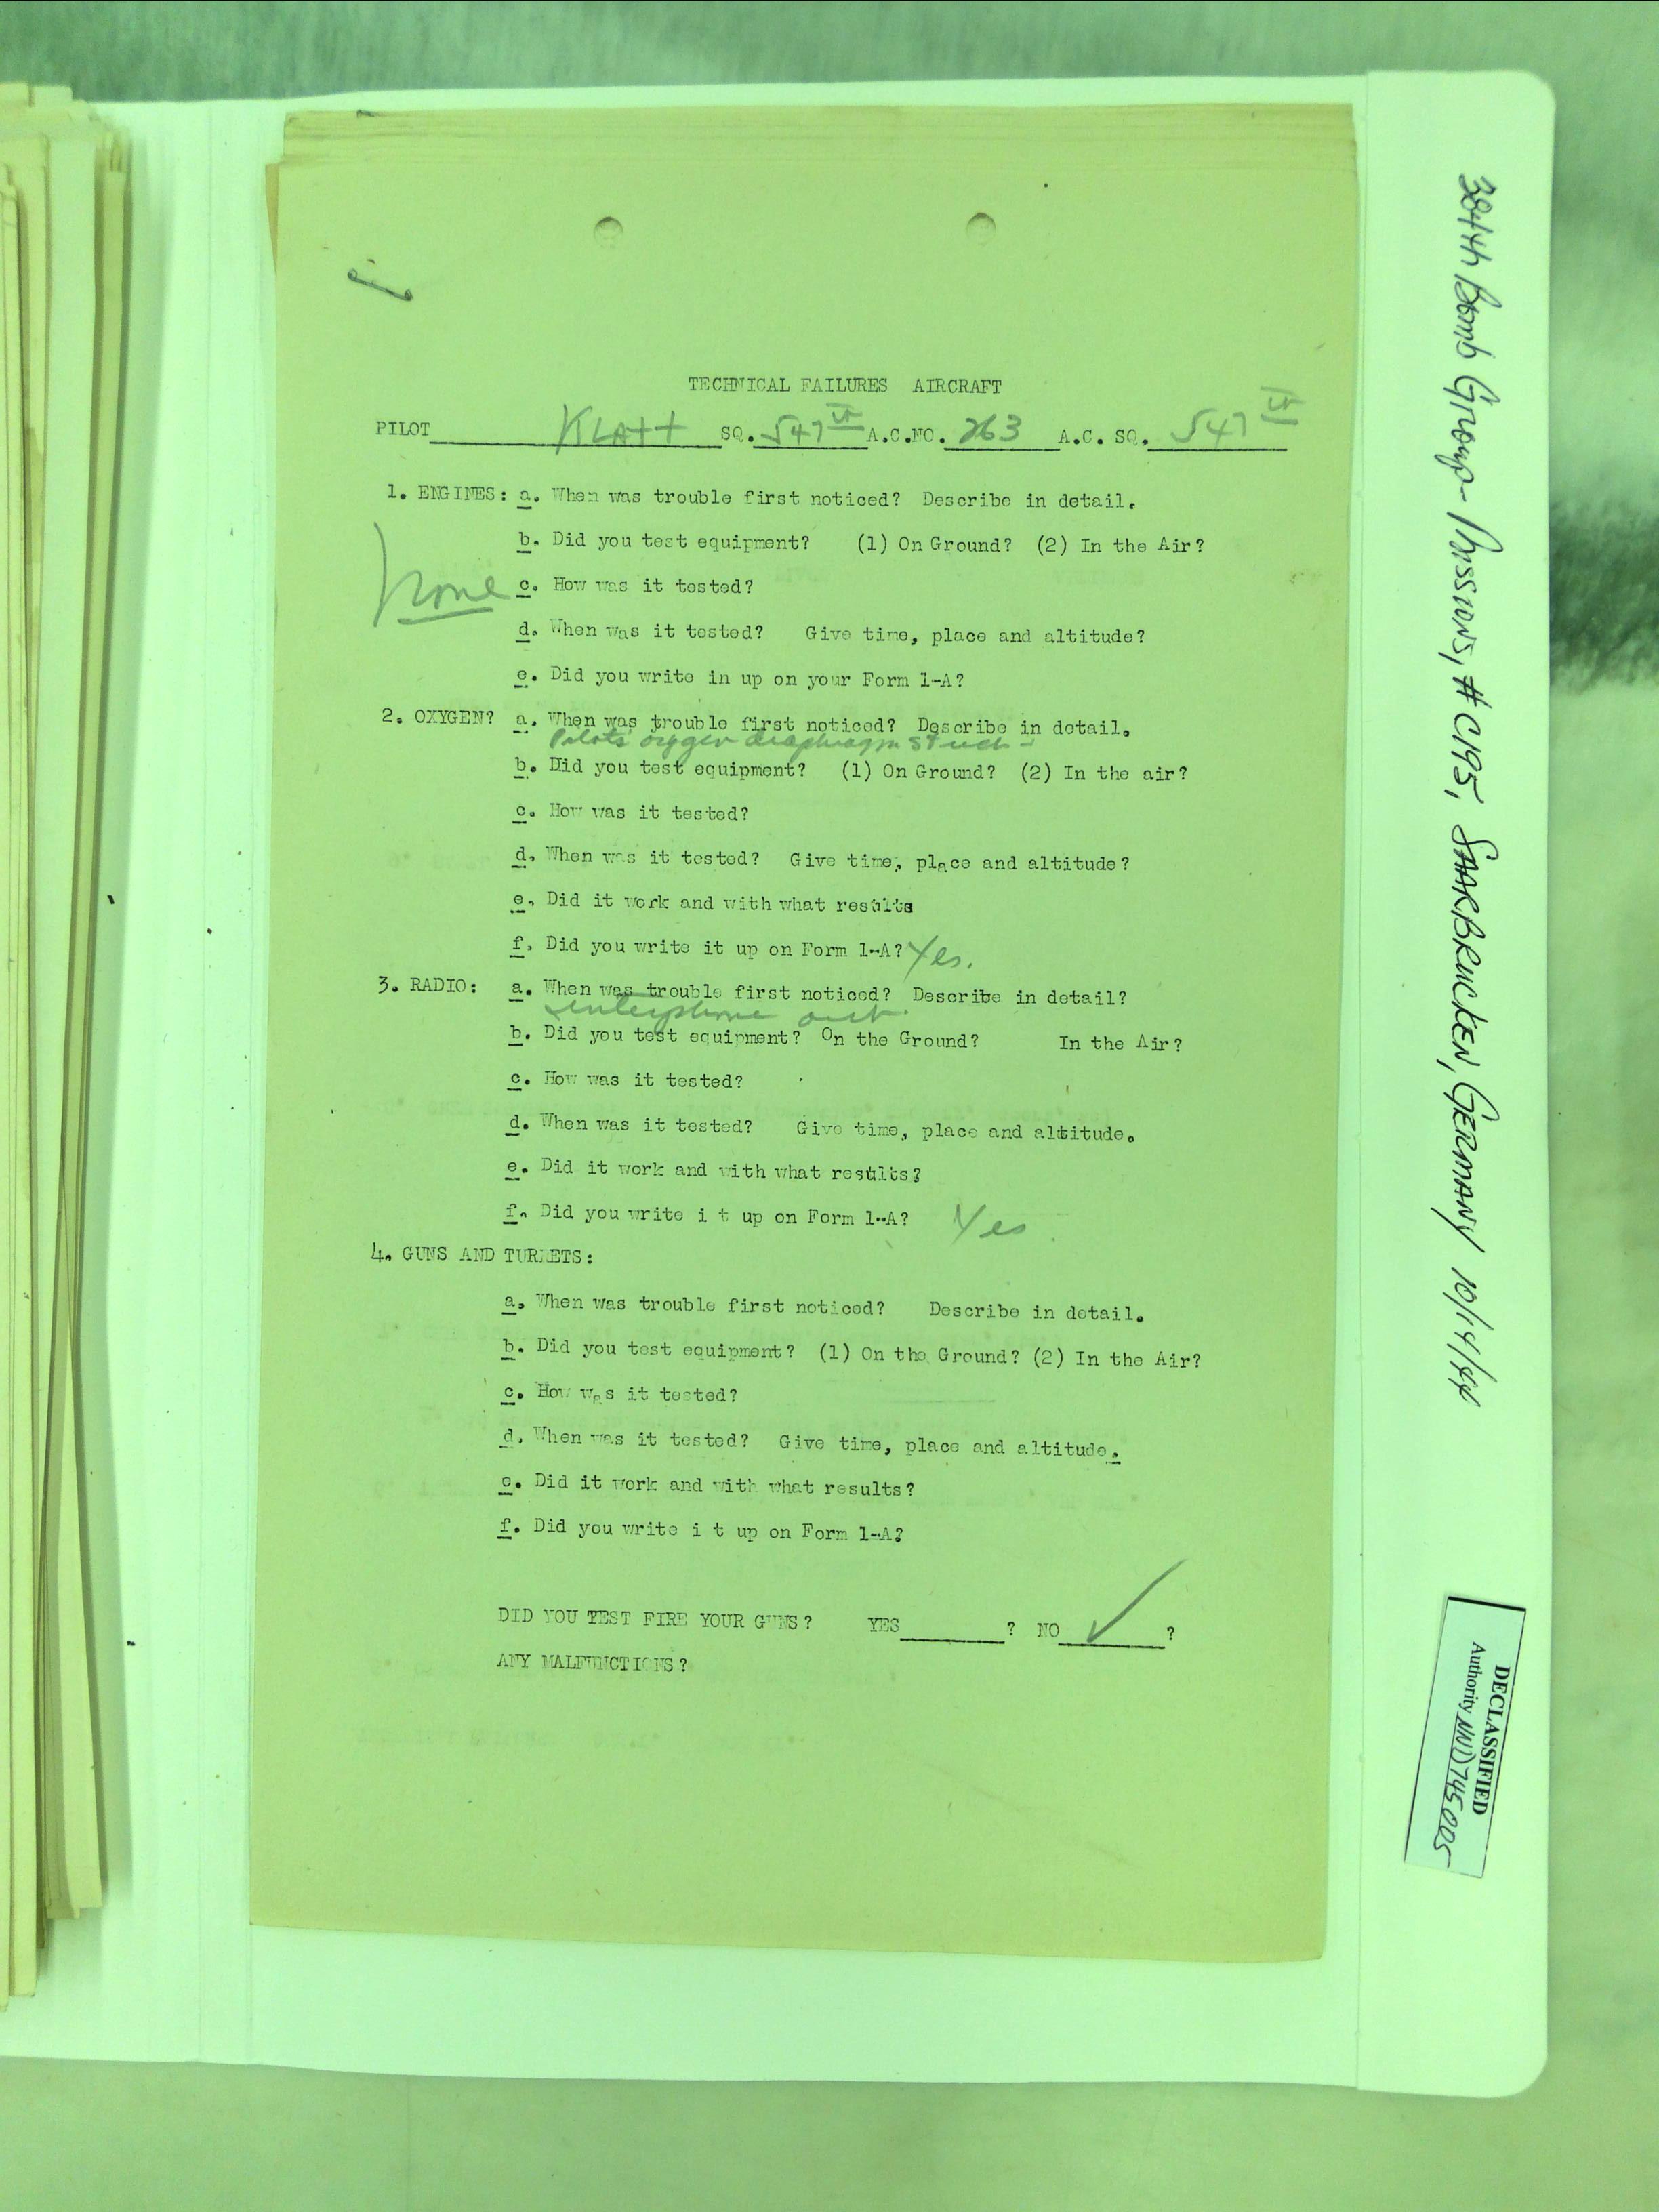 TECHNICAL FAILURES AIRCRAFT
PILOT KLAtt SQ. 547th A.C.NO. 263 A.C. SQ. 547th
1. ENGINES: a. When was trouble first noticed? Describe in detail.
b. Did you test equipment? (1) On Ground? (2) In the Air?
None
c. How was it tested?
d. When was it tested? Give time, place and altitude?
e. Did you write in up on your Form 1-A?
2. OXYGEN? a. When was trouble first noticed? Describe in detail.
Pilots oxygen diaphragm stuck -
b. Did you test equipment? (1) On Ground? (2) In the air?
c. How was it tested?
d. When was it tested? Give time, place and altitude?
e. Did it work and with what results
f. Did you write it up on Form 1-A? Yes.
3. RADIO: a. When was trouble first noticed? Describe in detail?
interphone out.
b. Did you test equipment? On the Ground? In the Air?
c. How was it tested?
d. When was it tested? Give time, place and altitude.
e. Did it work and with what results?
f. Did you write i t up on Form 1-A? Yes
4. GUNS AND TURRETS:
a. When was trouble first noticed? Describe in detail.
b. Did you test equipment? (1) On the Ground? (2) In the Air?
c. How was it tested?
d. When was it tested? Give time, place and altitude.
e. Did it work and with what results?
f. Did you write i t up on Form 1-A?
DID YOU TEST FIRE YOUR GUNS? YES ? NO ✓ ?
ANY MALFUNCTIONS?
384th Bomb Group- Missions, #C195, SAARBRUCKEN, GERMANY 10/14/44
DECLASSIFIED
Authority NND745005